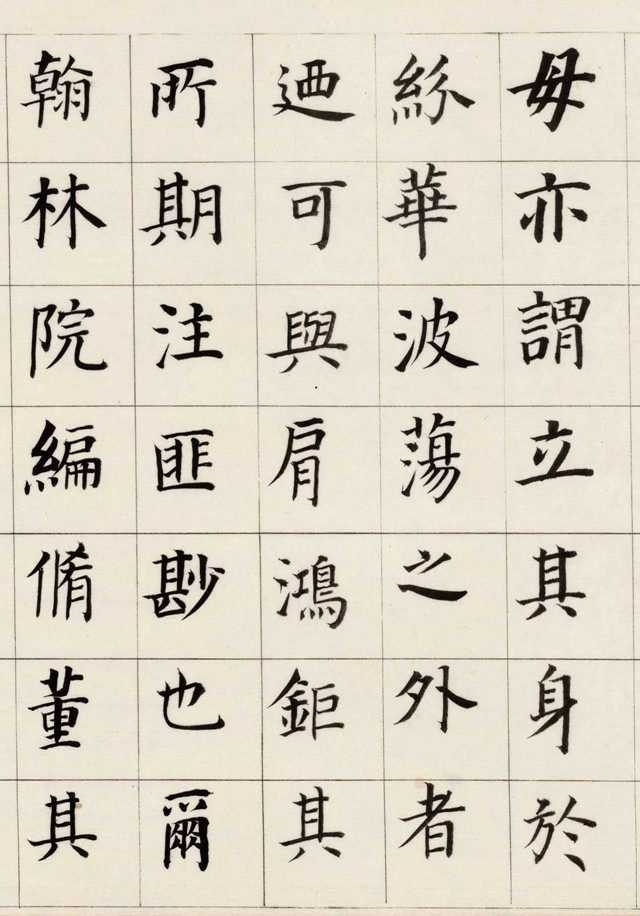 毋亦謂立其身於
紛華波蕩之外者
迺可與肩鴻鉅其
所期注匪尟也爾
翰林院編脩董其